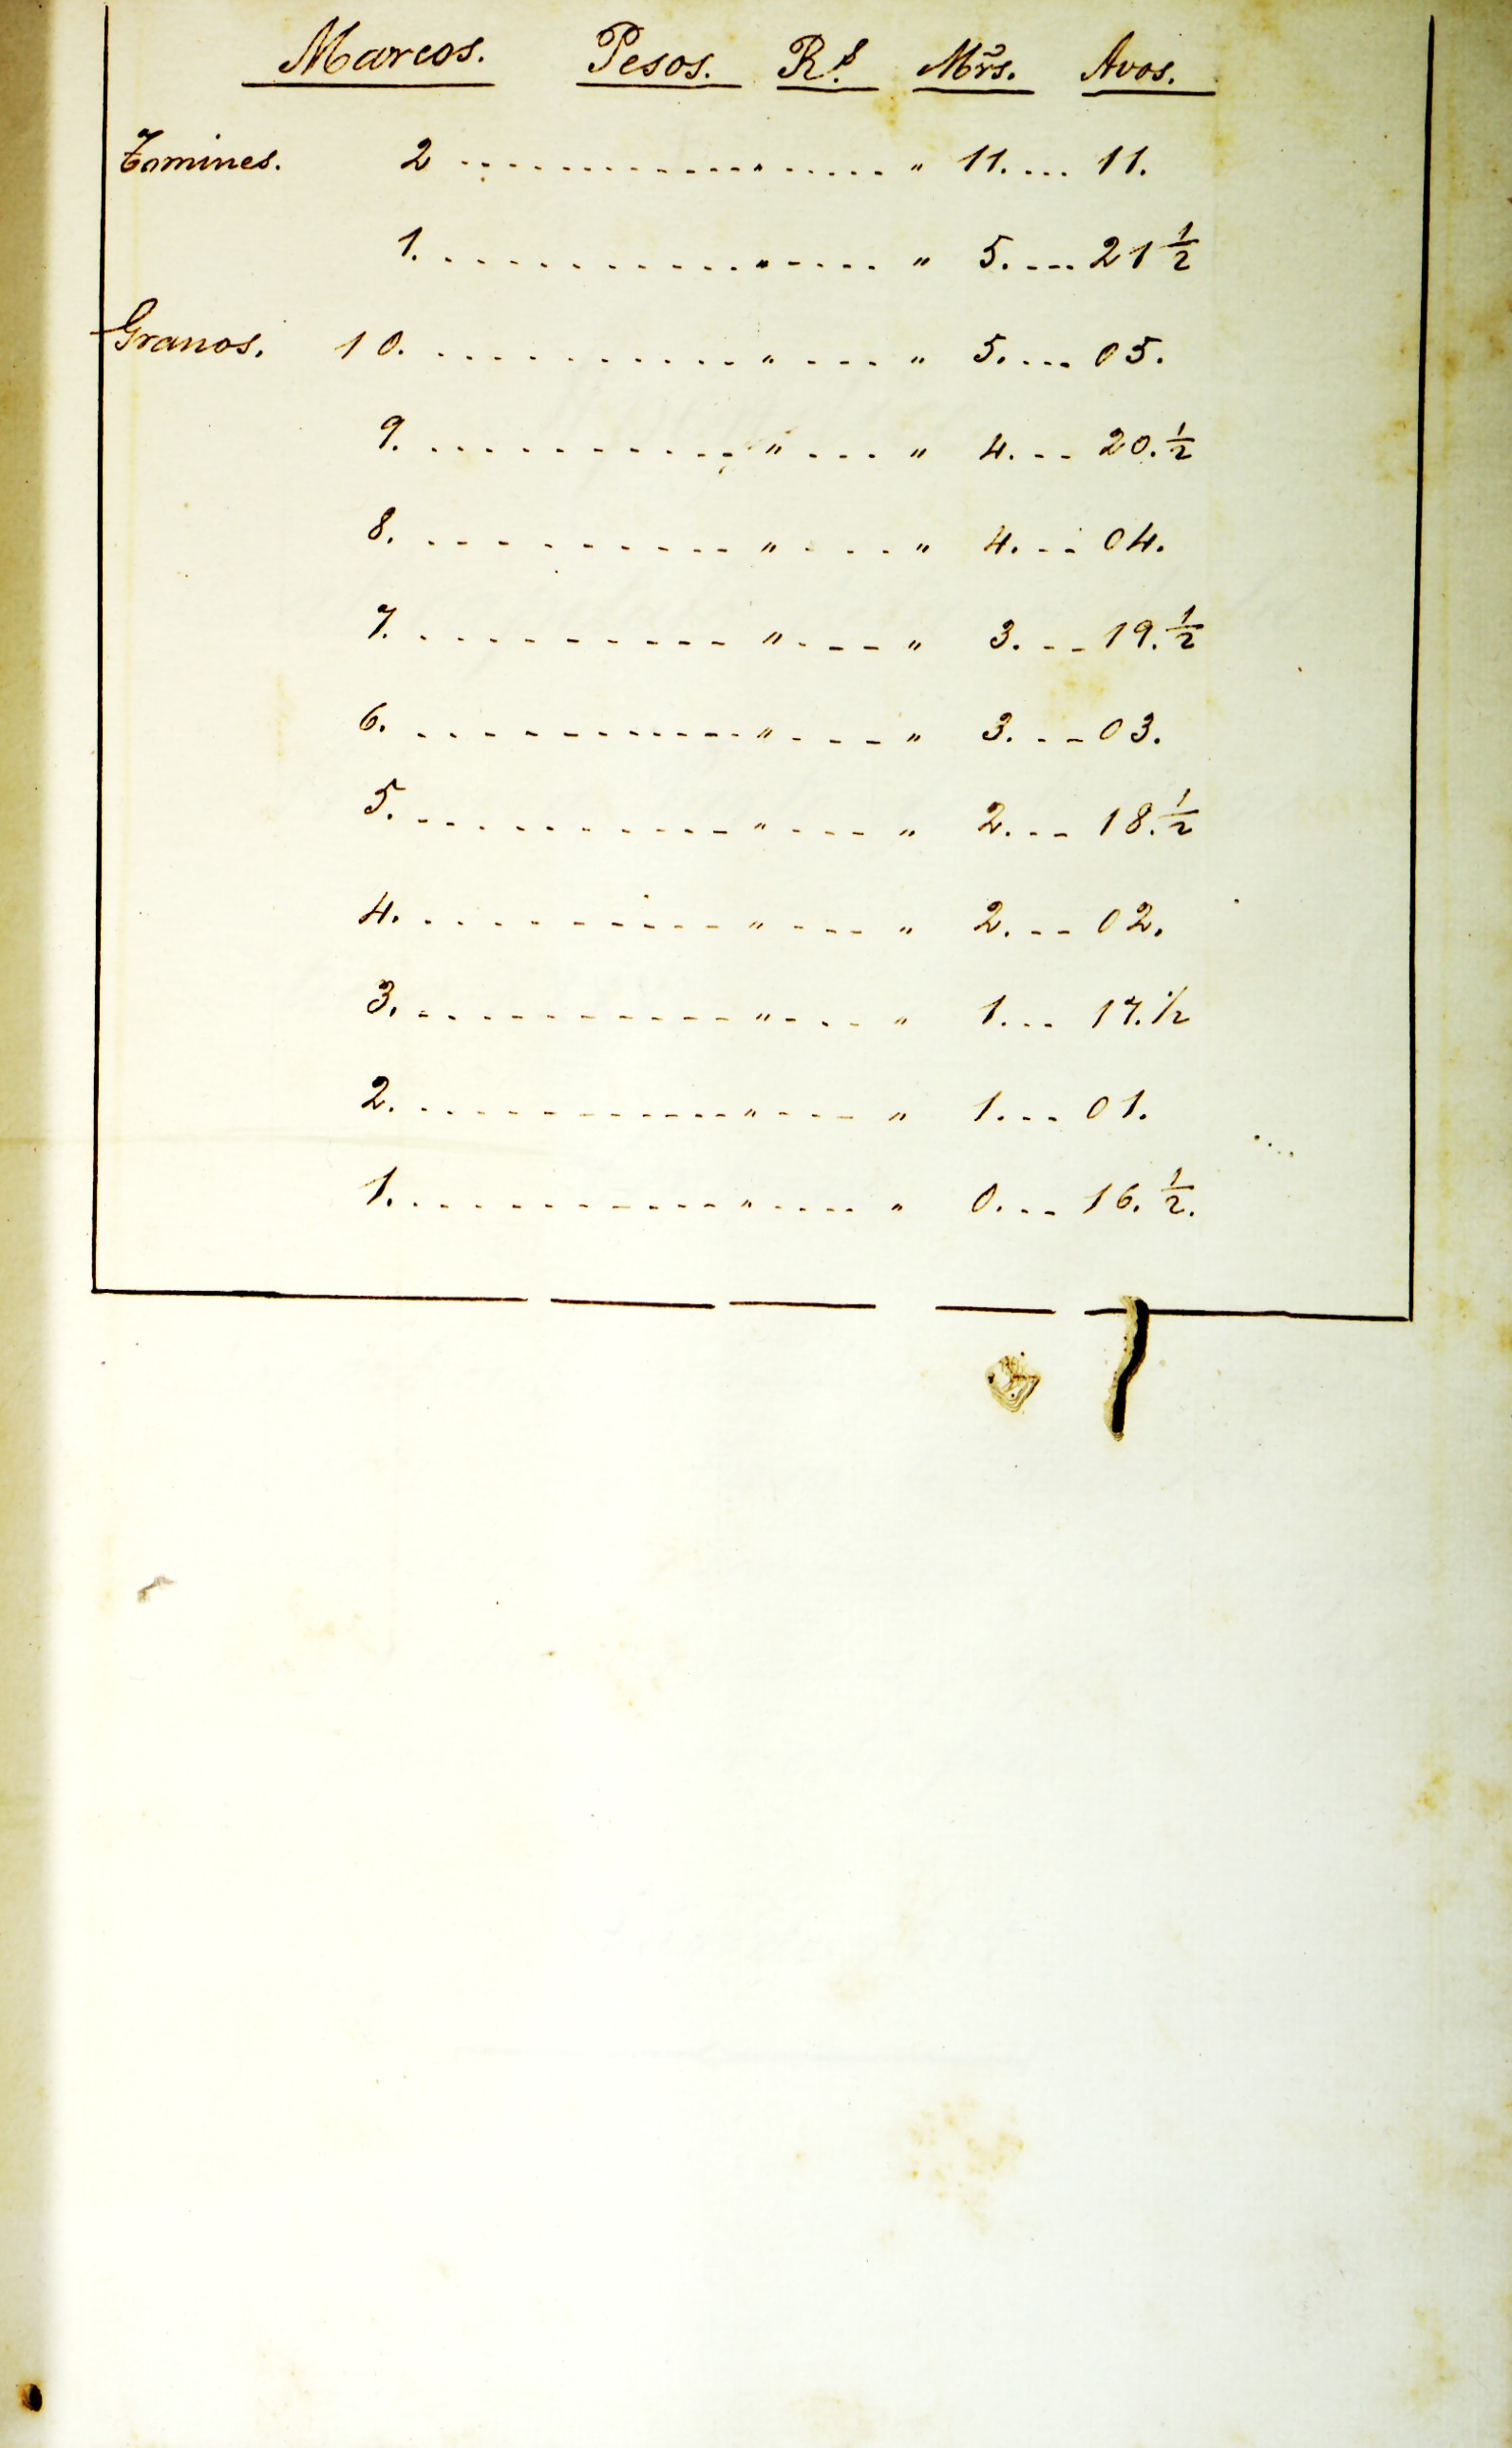 Marcos. Pesos. R.s Mrs. Avos.
Tomines. 2 ............ " ..... " 11. ... 11.
1. ............ " ..... " 5. ... 21 1/2
Granos. 10. ............ " .... " 5. ... 05.
9. ............ " .... " 4. .. 20. 1/2
8. ............ " .... " 4. .. 04.
7. ............ " .... " 3. .. 19. 1/2
6. ............ " .... " 3. .. 03.
5. ............ " .... " 2. .. 18. 1/2
4. ............ " .... " 2. .. 02.
3. ............ " .... " 1. .. 17. 1/2
2. ............ " .... " 1. .. 01.
1. ............ " .... " 0. .. 16. 1/2.